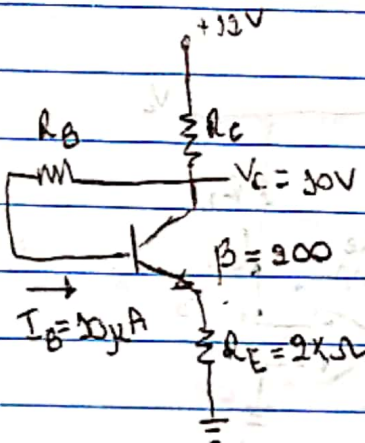 +12V
R_B
R_C
V_C = 10V
β = 200
I_B = 10μA
R_E = 2KΩ